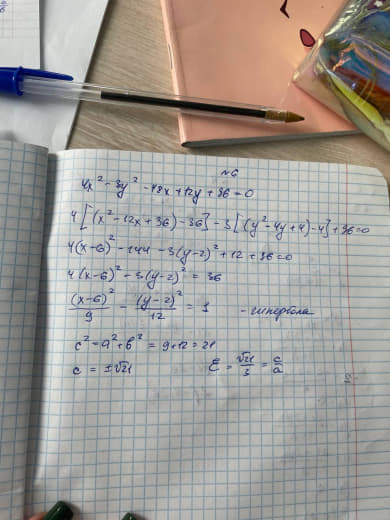 №6
4x² - 3y² - 48x + 12y + 36 = 0
4[(x² - 12x + 36) - 36] - 3[(y² - 4y + 4) - 4] + 36 = 0
4(x-6)² - 144 - 3(y-2)² + 12 + 36 = 0
4(x-6)² - 3(y-2)² = 36
(x-6)²/9 - (y-2)²/12 = 1 - гипербола
c² = a² + b² = 9 + 12 = 21
c = ±√21 ε = √21/3 = c/a